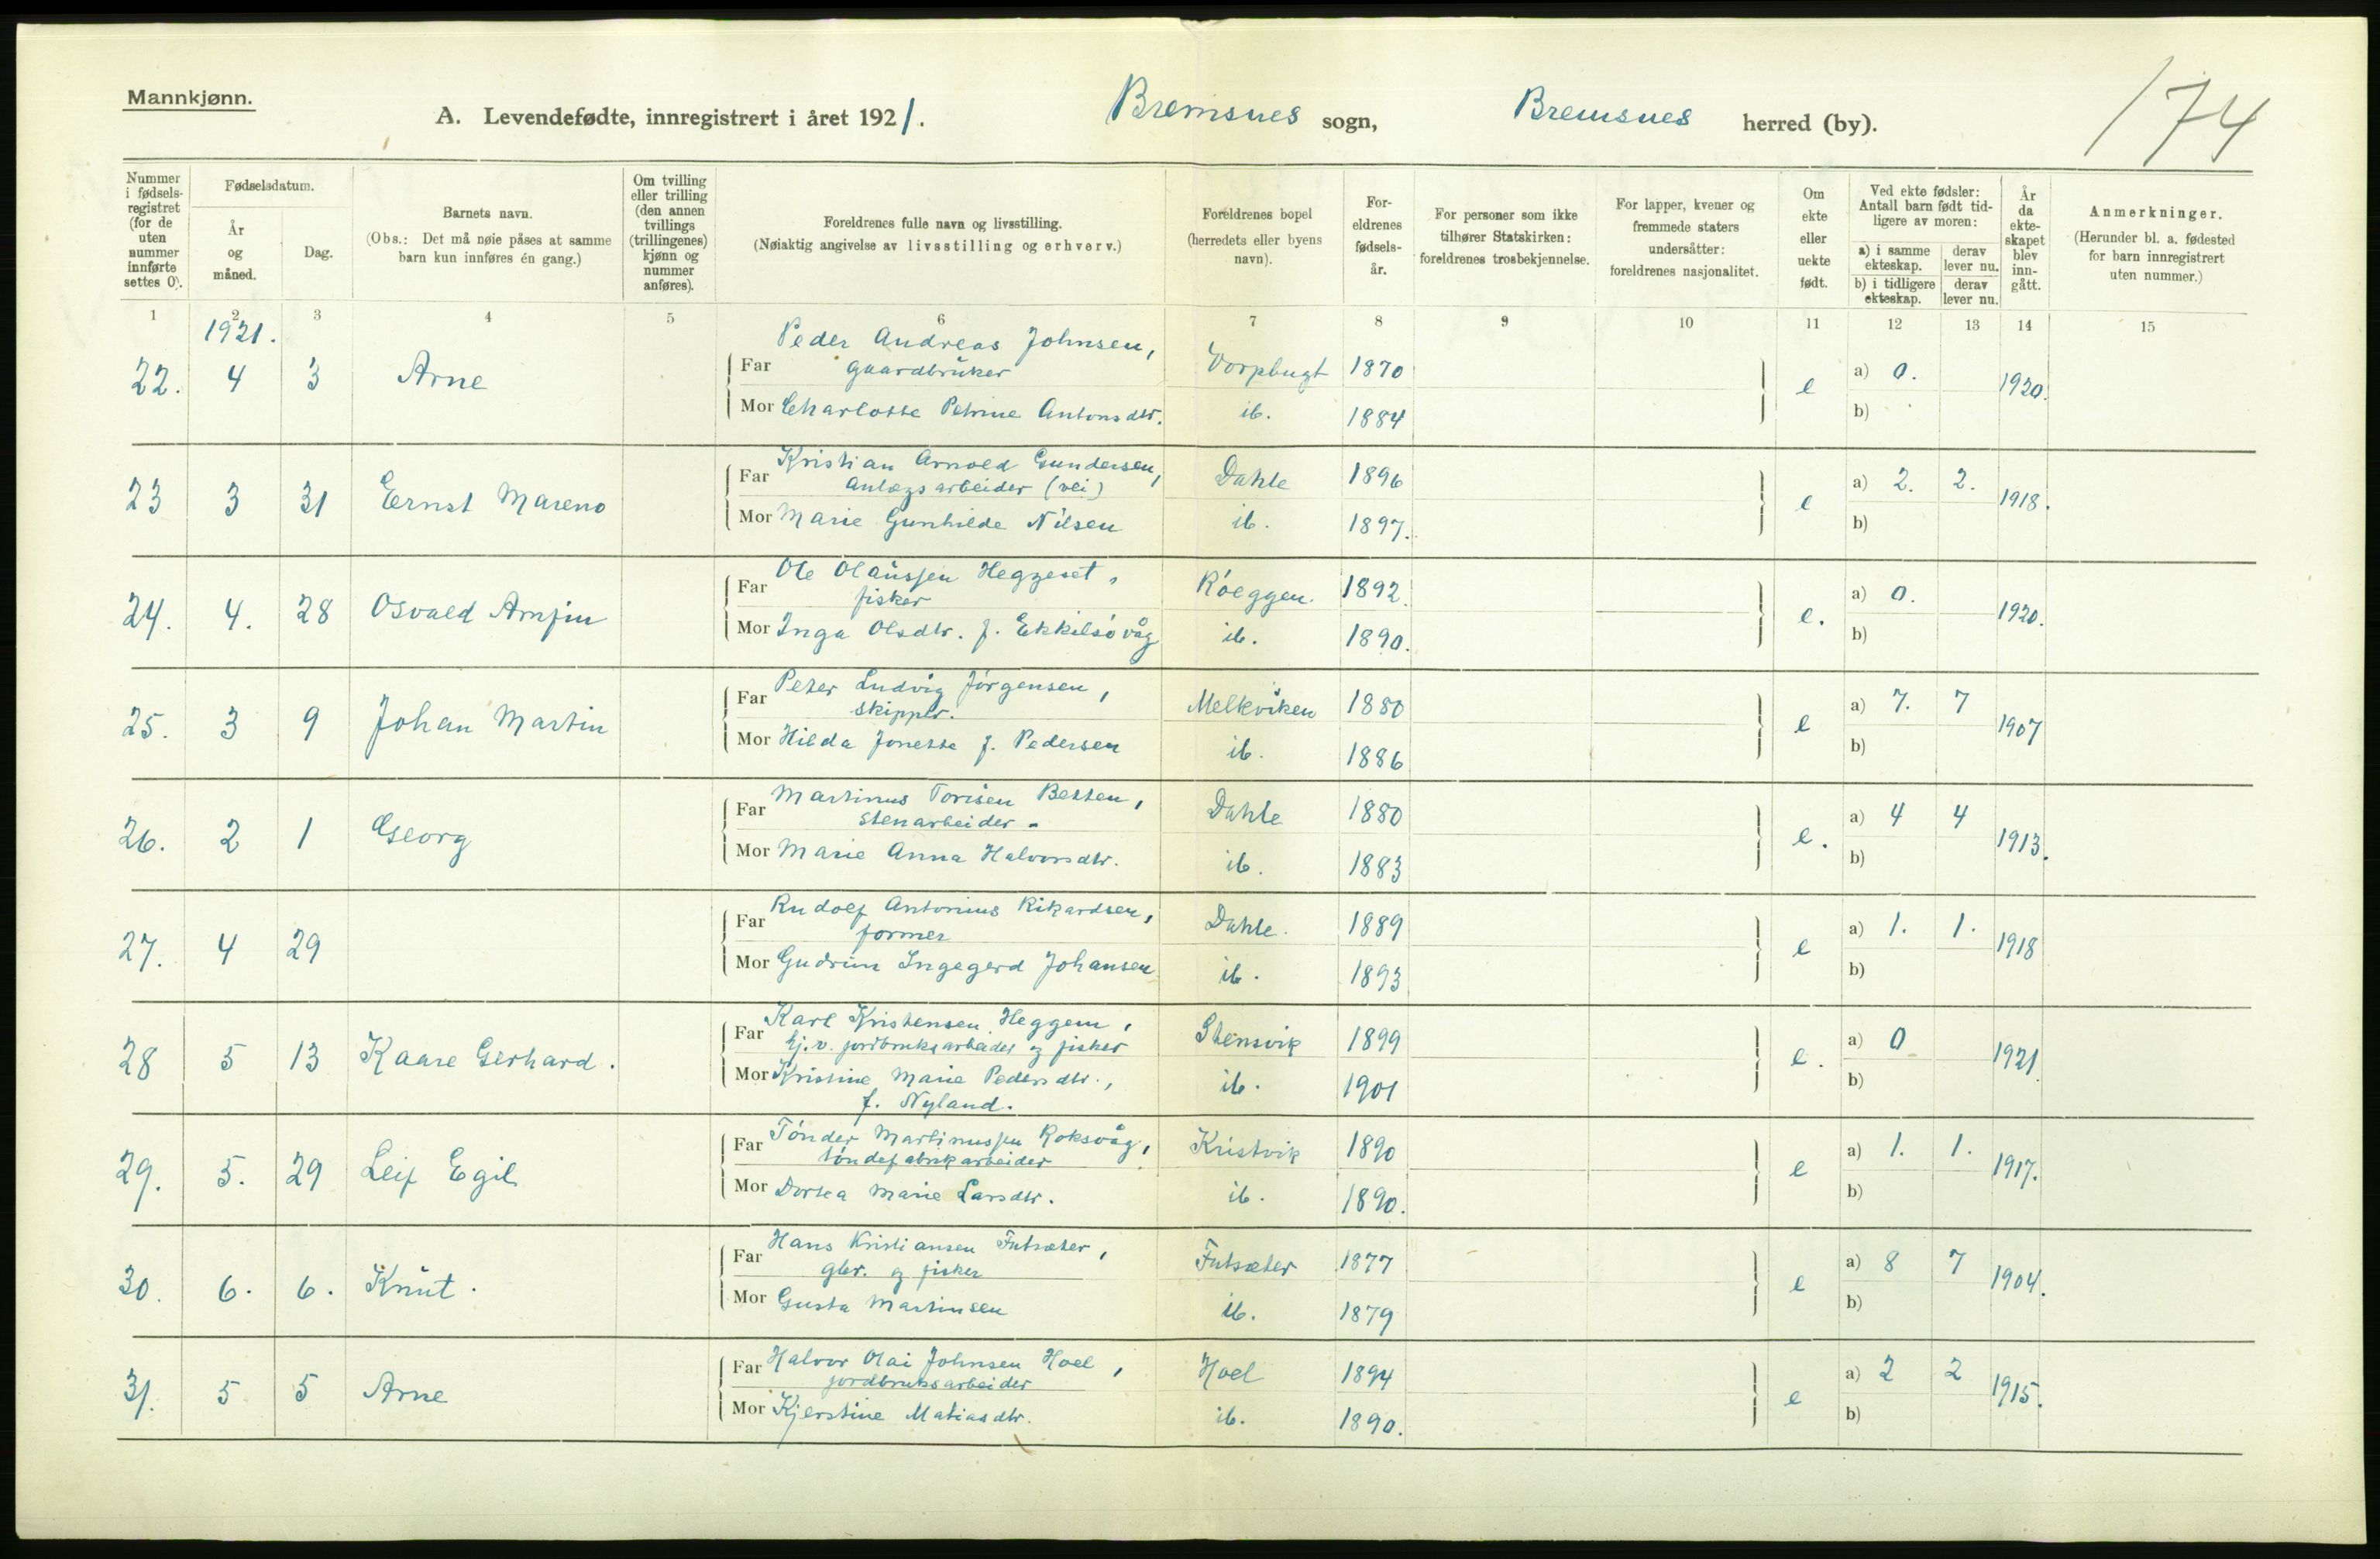 Mannkjønn.
A. Levendefødte, innregistrert i året 1921.
Bremsnes sogn,
Bremsnes herred (by).
174
Nummer i fødselsregistret (for de uten nummer innførte settes 0).
Fødselsdatum.
År og måned.
Dag.
Barnets navn.
(Obs.: Det må nøie påses at samme barn kun innføres én gang.)
Om tvilling eller trilling (den annen tvillings (trillingenes) kjønn og nummer anføres).
Foreldrenes fulle navn og livsstilling.
(Nøiaktig angivelse av livsstilling og erhverv.)
Foreldrenes bopel (herredets eller byens navn).
Foreldrenes fødselsår.
For personer som ikke tilhører Statskirken: foreldrenes trosbekjennelse.
For lapper, kvener og fremmede staters undersåtter: foreldrenes nasjonalitet.
Om ekte eller uekte født.
Ved ekte fødsler: Antall barn født tidligere av moren:
a) i samme ekteskap. derav lever nu.
b) i tidligere ekteskap. derav lever nu.
År da ekteskapet blev inngått.
Anmerkninger.
(Herunder bl. a. fødested for barn innregistrert uten nummer.)
1 2 3 4 5 6 7 8 9 10 11 12 13 14 15
1921.
Peder Andreas Johnsen,
22. 4 3 Arne Far gaardbruker Vorpbugt 1870 e a) 0. 1920.
Mor Charlotte Petrine Antonsdtr. ib. 1884 b)
Kristian Arnold Gundersen,
23 3 31 Ernst Mareno Far Anlægsarbeider (vei) Dahle 1896 e a) 2. 2. 1918.
Mor Marie Gunhilde Nilsen ib. 1897. b)
Ole Olaussen Hegzeset,
24. 4. 28 Osvald Arnfin Far fisker Röeggen. 1892. e. a) 0. 1920.
Mor Inga Olsdtr. f. Ekkilsövåg ib. 1890. b)
Peter Ludvig Jörgensen,
25. 3 9 Johan Martin Far skipper. Melkviken 1880 e a) 7. 7 1907
Mor Hilda Jonette f. Pedersen ib. 1886 b)
Martinus Torisen Betten,
26. 2 1 Georg Far stenarbeider - Dahle 1880 e. a) 4 4 1913.
Mor Marie Anna Halvorsdtr. ib. 1883 b)
Rudolf Antonius Rikardsen,
27. 4 29 Far former Dahle. 1889 e a) 1. 1. 1918
Mor Gudrun Ingegerd Johansen ib. 1893 b)
Karl Kristensen Heggem,
28 5 13 Kaare Gerhard. Far lj.v. jordbruksarbeider og fisker Stensvik 1899 e. a) 0 1921
Mor Kristine Marie Pedersdtr., ib. 1901 b)
f. Nyland.
Tönder Martinussen Roksvåg,
29. 5. 29 Leif Egil Far töndefabrikarbeider Kristvik 1890 e a) 1. 1. 1917.
Mor Dortea Marie Larsdtr. ib. 1890. b)
Hans Kristiansen Futsæter,
30. 6. 6. Knut. Far gbr. og fisker Futsæter 1877 e a) 8 7 1904.
Mor Gusta Martinsen ib. 1879 b)
Halvor Olai Johnsen Hoel,
31. 5 5 Arne Far jordbruksarbeider Hoel 1894 e a) 2 2 1915.
Mor Kjerstine Matiasdtr. ib. 1890. b)